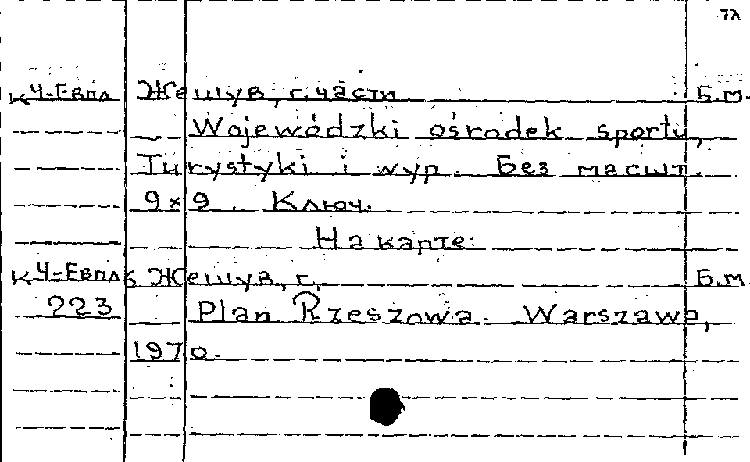 7л
К Ч-Евпл Жешув, г. части Б.м.
Wojewódzki ośrodek sportu,
Turystyki i wyp. Без масшт.
9×9. Ключ.
На карте:
К Ч-Евпл Жешув, г. Б.м
223 Plan Rzeszowa. Warszawa,
1970.